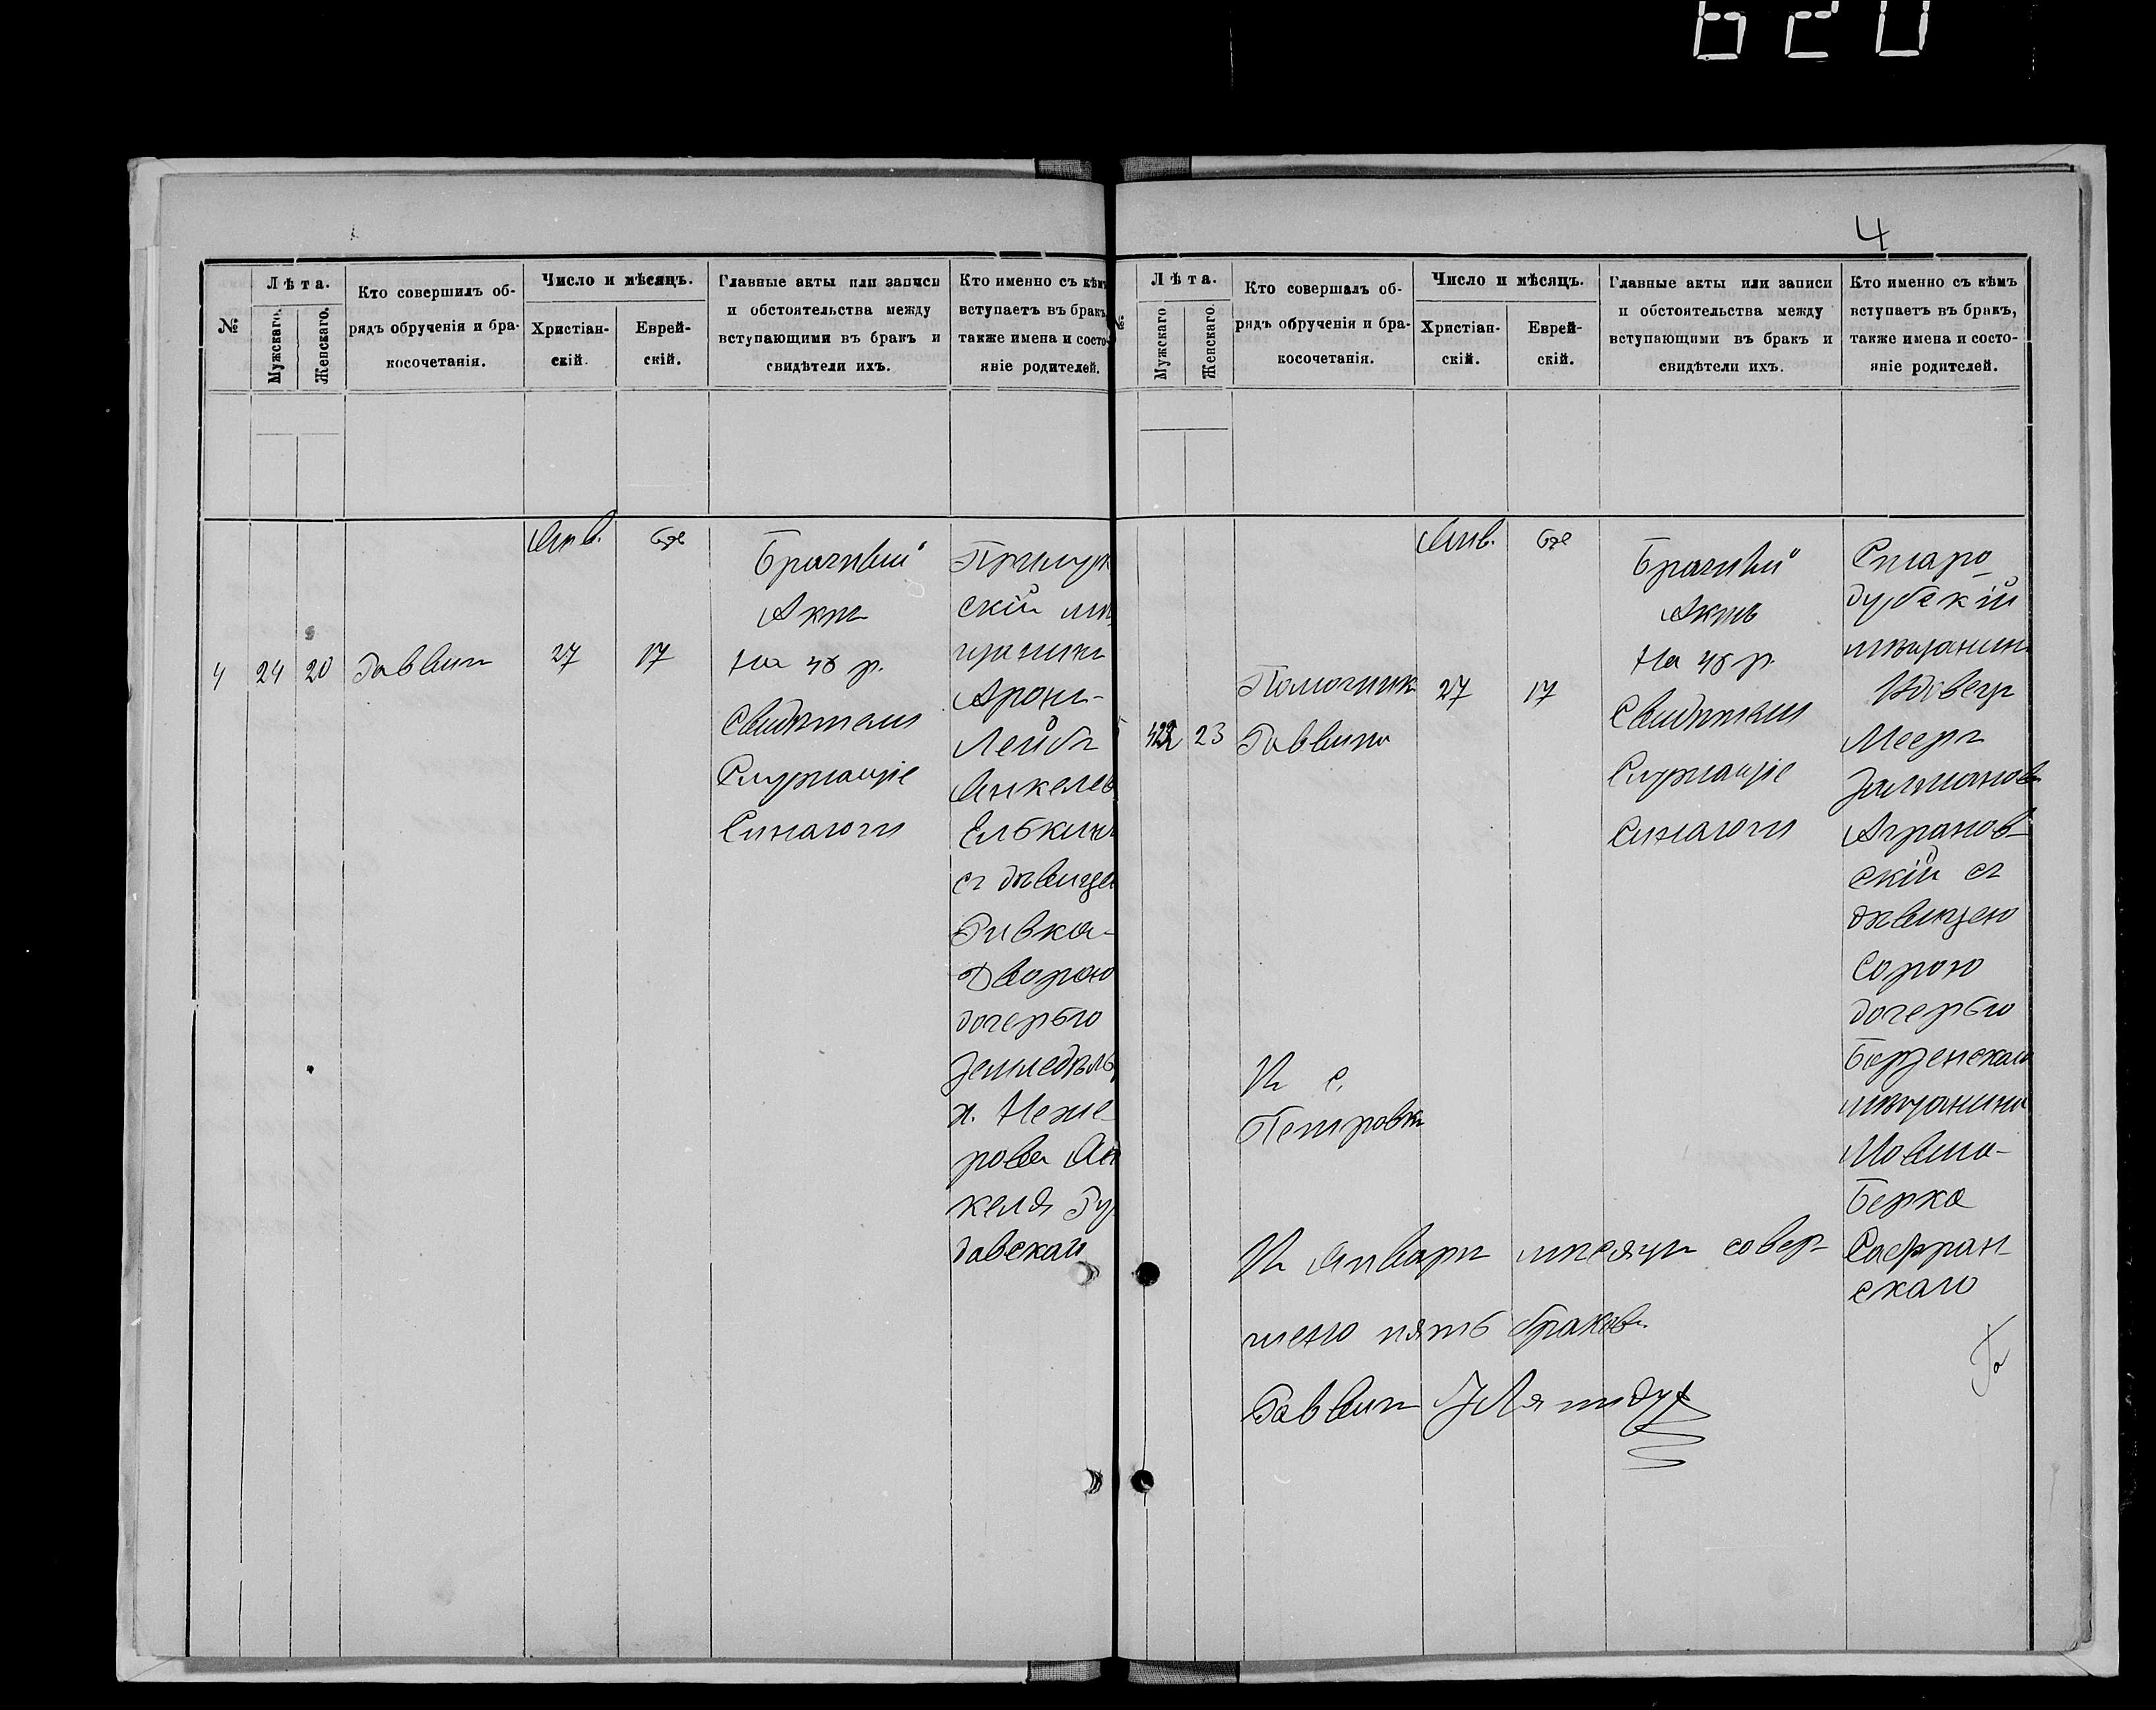 620
4
№
Лѣта.
Мужскаго.
Женскаго.
Кто совершилъ об-
рядъ обрученія и бра-
косочетанія.
Число и мѣсяцъ.
Христіан-
скій.
Еврей-
скій.
Главные акты или записи
и обстоятельства между
вступающими въ бракъ и
свидѣтели ихъ.
Кто именно съ кѣмъ
вступаетъ въ бракъ,
также имена и состо-
яніе родителей.
4
24
20
Раввинъ
Янв.
27
17
Брачный
Актъ
на 48 р.
Свидѣтели
Служащіе
Синагоги
Прилук
скій мѣ
щанинъ
Аронъ-
Лейбъ
Янкелев
Елькинъ
съ дѣвице
Ривка-
Дворою
дочерью
Земледѣль
к.
рова Ян
келя
давскаи
№
Лѣта.
Мужскаго
Женскаго.
Кто совершалъ об-
рядъ обрученія и бра-
косочетанія.
Число и мѣсяцъ.
Христіан-
скій.
Еврей-
скій.
Главные акты или записи
и обстоятельства между
вступающими въ бракъ и
свидѣтели ихъ.
Кто именно съ кѣмъ
вступаетъ въ бракъ,
также имена и состо-
яніе родителей.
23
Помощник
Раввина
Въ с.
Петровкѣ
Янв.
27
17
Брачный
Актъ
на 48 р.
Свидѣтели
Служащіе
Синагоги
Старо
дубскій
мѣщанинъ
Вдовецъ
Мееръ
Залманов
Агранов-
скій съ
дѣвицею
Сорою
дочерью
Борзенскаго
мѣщанина
Мовша-
Берка
Сафран-
скаго
Въ Январѣ мѣсяцѣ совер-
шено пять браковъ.
Раввинъ